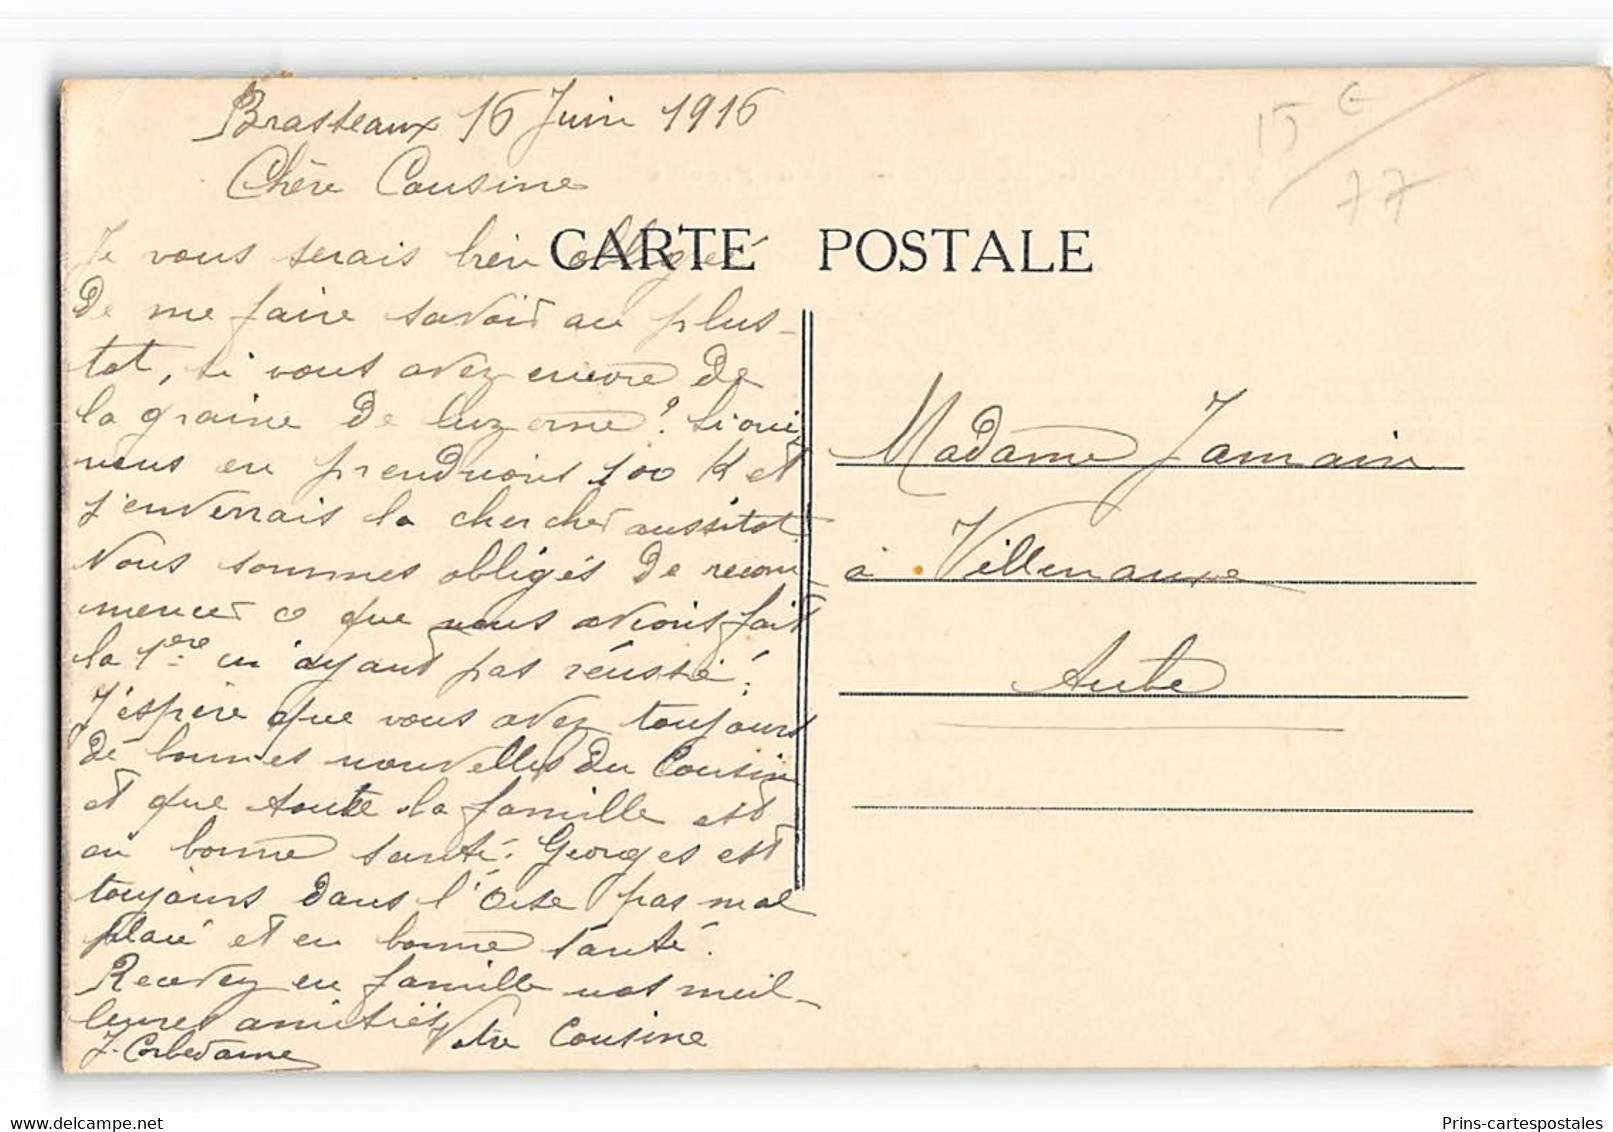 Brasseaux 16 Juin 1916
Chère Cousine
Je vous serais bien obligée
De me faire savoir au plus-
tot, si vous avez encore De
la graine De luzerne? Si oui,
nous en prendrions 100 K et
j'enverrais la chercher aussitot
Nous sommes obligés De recom
mencer ce que nous avions fait
la 1ère n'ayant pas réussie.
J'espère que vous avez toujours
De bonnes nouvelles Du Cousin
et que toute la famille est
en bonne santé. Georges est
toujours Dans l'Oise pas mal
placé et en bonne santé.
Recevez en famille nos meil-
leures amitiés Votre Cousine
CARTE POSTALE
15 €
77
Madame Jamain
à Villenauxe
Aube
delcampe.net
Prins-cartespostales